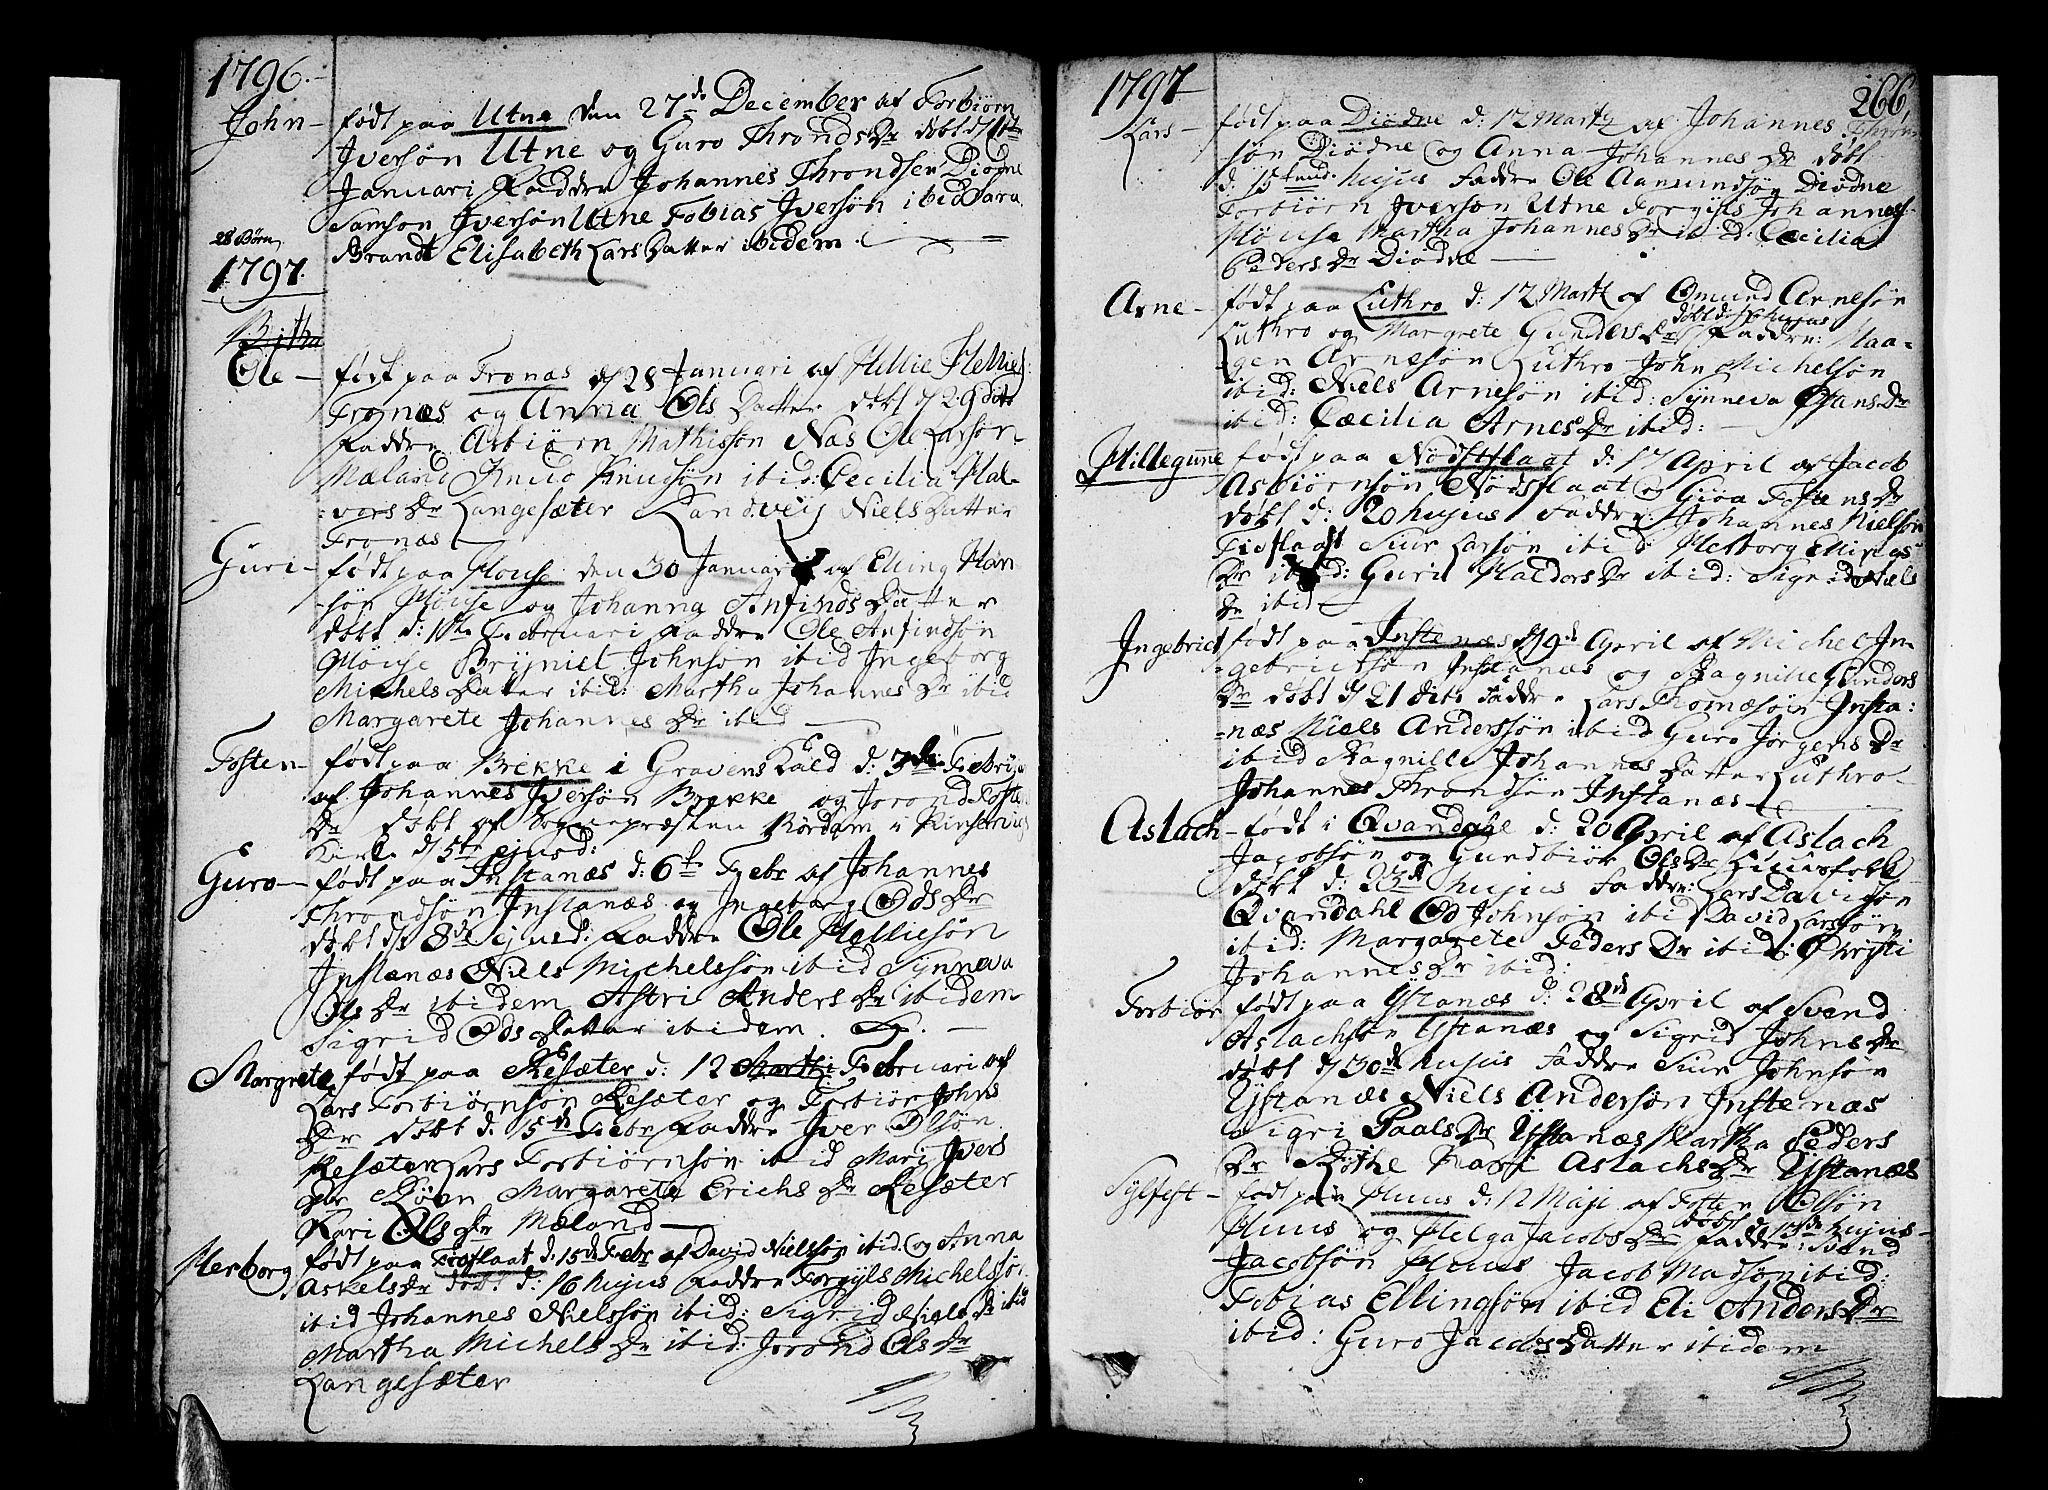 1796.
John - født paa Utne den 27de December af Torbiørn
Iversøn Utne og Guro ThrondsDr døbt d
Januari Faddre Johannes Throndsen Diøone
Samson Iversøn Utne Tobias Iversøn ibid Sara
Brandt Elisabeth Lars Datter ibidem.
28 Børn
1797.
Ole - født paa Tronæs d 28 Januari af Hellie Hellies
Tronæs og Anna Ols Datter døbt d 29 dito
Faddre Asbiørn Mathisson Nas Ole Larsøn
Mæland Knud Knudsøn ibid: Cecilia Hal-
-vors Dr Langesæter Randveig Niels Datter
Tronæs
Guri - født paa House den 30 Januari af Elling Han
-søn House og Johanna Anfinds Datter
døbt d: 1ste Februari Faddre Ole Anfindsøn
Høuse Brynild Johnsøn ibid Ingeborg
Michels Datter ibid: Martha Johannes Dr ibid
Margarete Johannes Dr ibid
Tosten - født paa Brekke i Gravens Kald d: 3die Febr
af Johannes Iversøn Brekke og Jorond Tosten
Dr døbt af Sognepræsten Rördam i Kinservig
Kirke d 5te ejusd:
Guro - født paa Instanæs d: 6te Febr af Johannes
Throndsøn Instanæs og Ingeborg Ods Dr
døbt d 8de ejusd: Faddre Ole Helliesøn
Instenæs Niels Michelssøn ibid Synneva
Ols Dr ibidem Astri Anders Dr ibidem
Sigrid Ods Datter ibidem.
Margrete født paa Resæter d: 12 Martii Februari af
Lars Torbiørnsøn Resæter og Torbiør Johns
Dr døbt d: 15de Febr Faddre Iver Olsøn
Resæter Lars Torbiørnsøn ibid Mari Ivers
Dr Røen Margarete Erichs Dr Resæter
Kari Ols Dr Mæland
Herborg født paa Tioflaat d: 15de Febr af David Nielssøn ibid: og Anna
Askels Dr døbt d: 16 hujus Faddre Torgyls Michelssøn
ibid Johannes Nielssøn ibid: Sigrid Niels Dr ibid
Martha Michels Dr ibid: Jorond Ols Dr
Langesæter
1797
266,
Lars - født paa Diødne d: 12 Martz af Johannes Thron
søn Diødne og Anna Johannes Dr døbt
d: 15 hujus Faddre Ole Aamundsøn Diødne
Torbiørn Iversøn Utne Torgyls Johannes
Høuse Martha Johannes Dr ibid: Cæcilia
Peders Dr Diødne
Arne - født paa Luthro d: 12 Martz af Omund Arnesøn
Luthro og Margrete Gunders Dr døbt d: 16 hujus Faddre: Haa-
gen Arnesøn Luthro John Michelsøn
ibid: Niels Arnesøn ibid: Synneva Hans Dr
ibid: Cæcilia Arnes Dr ibid:
Hillegunne født paa Nødstflaat d: 17 April af Jacob
Asbiørnsøn Nødsflaat og Gioa Tostens Dr
døbt d: 20 hujus Faddre: Johannes Nielsøn
Tioflaat Siur Larsøn ibid: Herborg Ellings
Dr ibid: Guri Haldors Dr ibid: Sigrid Niels
Dr ibid
Ingebrict født paa Instenæs d 19de April af Michel In-
-gebrictsøn Instanæs og Ragnille Gunders
Dr døbt d 21 dito Faddre Lars Thomæsøn Insta:
-næs Niels Anderssøn ibid Guro Jørgens Dr
ibid Ragnille Johannes Datter Luthro
Johannes Throndsøn Instanæs
Aslach - født i Qvandahl d: 20 April af Aslach
Jacobsøn og Gundbiør Ols Dr Huusfolk
døbt d: 23de hujus Faddre: Lars Davidsøn
Qvandahl Od Johnsøn ibid David Larssøn
ibid: Margarete Peders Dr ibid: Christi
Johannes Dr ibid:
Torbiør født paa Ystanæs d: 28de April af Svend
Aslachsøn Ystanæs og Sigrid Johns Dr
døbt d 30de hujus Faddre Siur Johnsøn
Ystanæs Niels Andersøn Instenæs
Sigri Paals Dr Ystanæs Martha Peders
Dr Røthe Kari Aslachs Dr Ystanæs
Sylfest - født paa Huus d: 12 Maji af Totten Olsøn
Huus og Helga Jacobs Dr døbt d: 13de hujus - Faddre: Svend
Jacobsøn Huus Jacob Madsøn ibid:
Tobias Ellingsøn ibid Eli Anders Dr
ibid: Guro Jacobs Datter ibidem